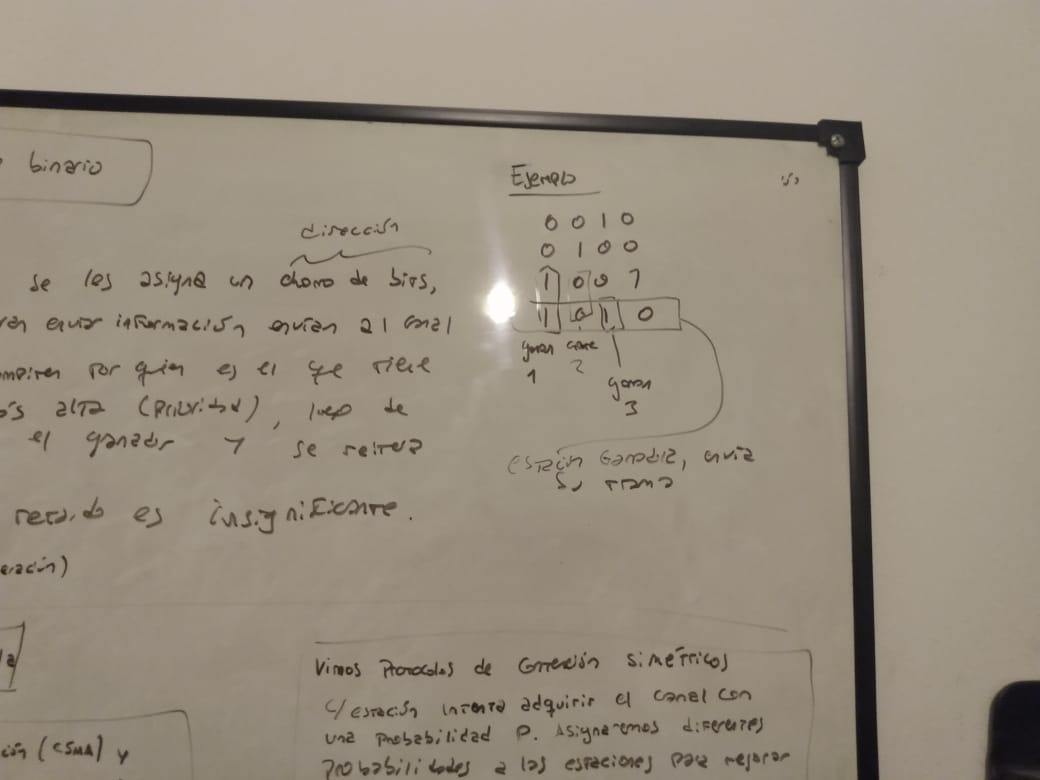 binario
dirección
se les asigna un chorro de bits,
enviar información envían al canal
por quien es el que tiene
alta (prioridad), luego de
el ganador y se reitera
retardo es insignificante.
Ejemplo
0 0 1 0
0 1 0 0
1 0 0 1
1 0 1 0
ganan
1 2
ganan
3
estación ganadora, envía
su trama
Vimos Protocolos de Contención simétricos
c/estación intenta adquirir el canal con
una probabilidad P. Asignaremos diferentes
probabilidades a las estaciones para mejorar
(CSMA) y